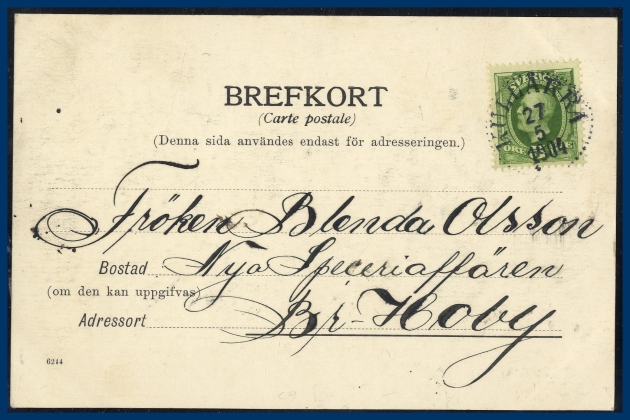 BREFKORT
(Carte postale)
(Denna sida användes endast för adresseringen.)
SVERIGE
27
5
1904
Fröken Blenda Olsson
Bostad Nya Speceriaffären
(om den kan uppgifvas)
Adressort Br-Hoby
6244